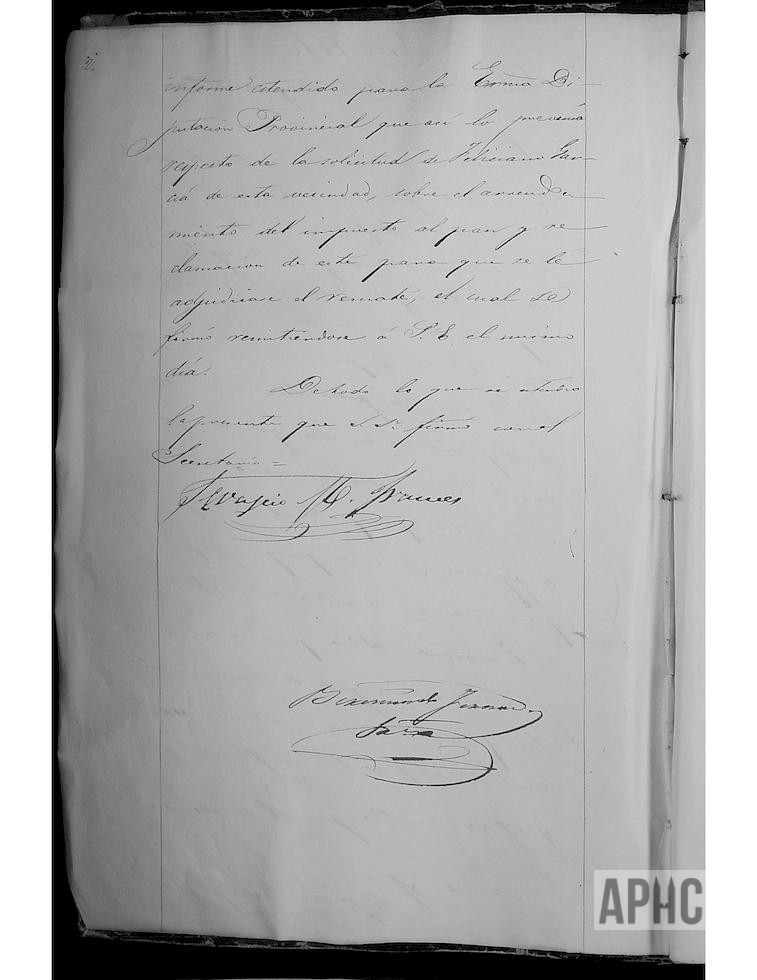 2.
informe estendido para la Exma Di-
putacion Provincial que asi lo prevenia
respecto de la solicitud de Feliciano Gar-
cia de esta vecindad, sobre el arrenda
miento del impuesto al pan y re
clamacion de este para que se le
adjudicase el remate, el cual se
firmó remitiendose á S. E. el mismo
dia.
De todo lo que se estendio
la presente que S. Sª. firmó con el
Secretario =
M.
APHC